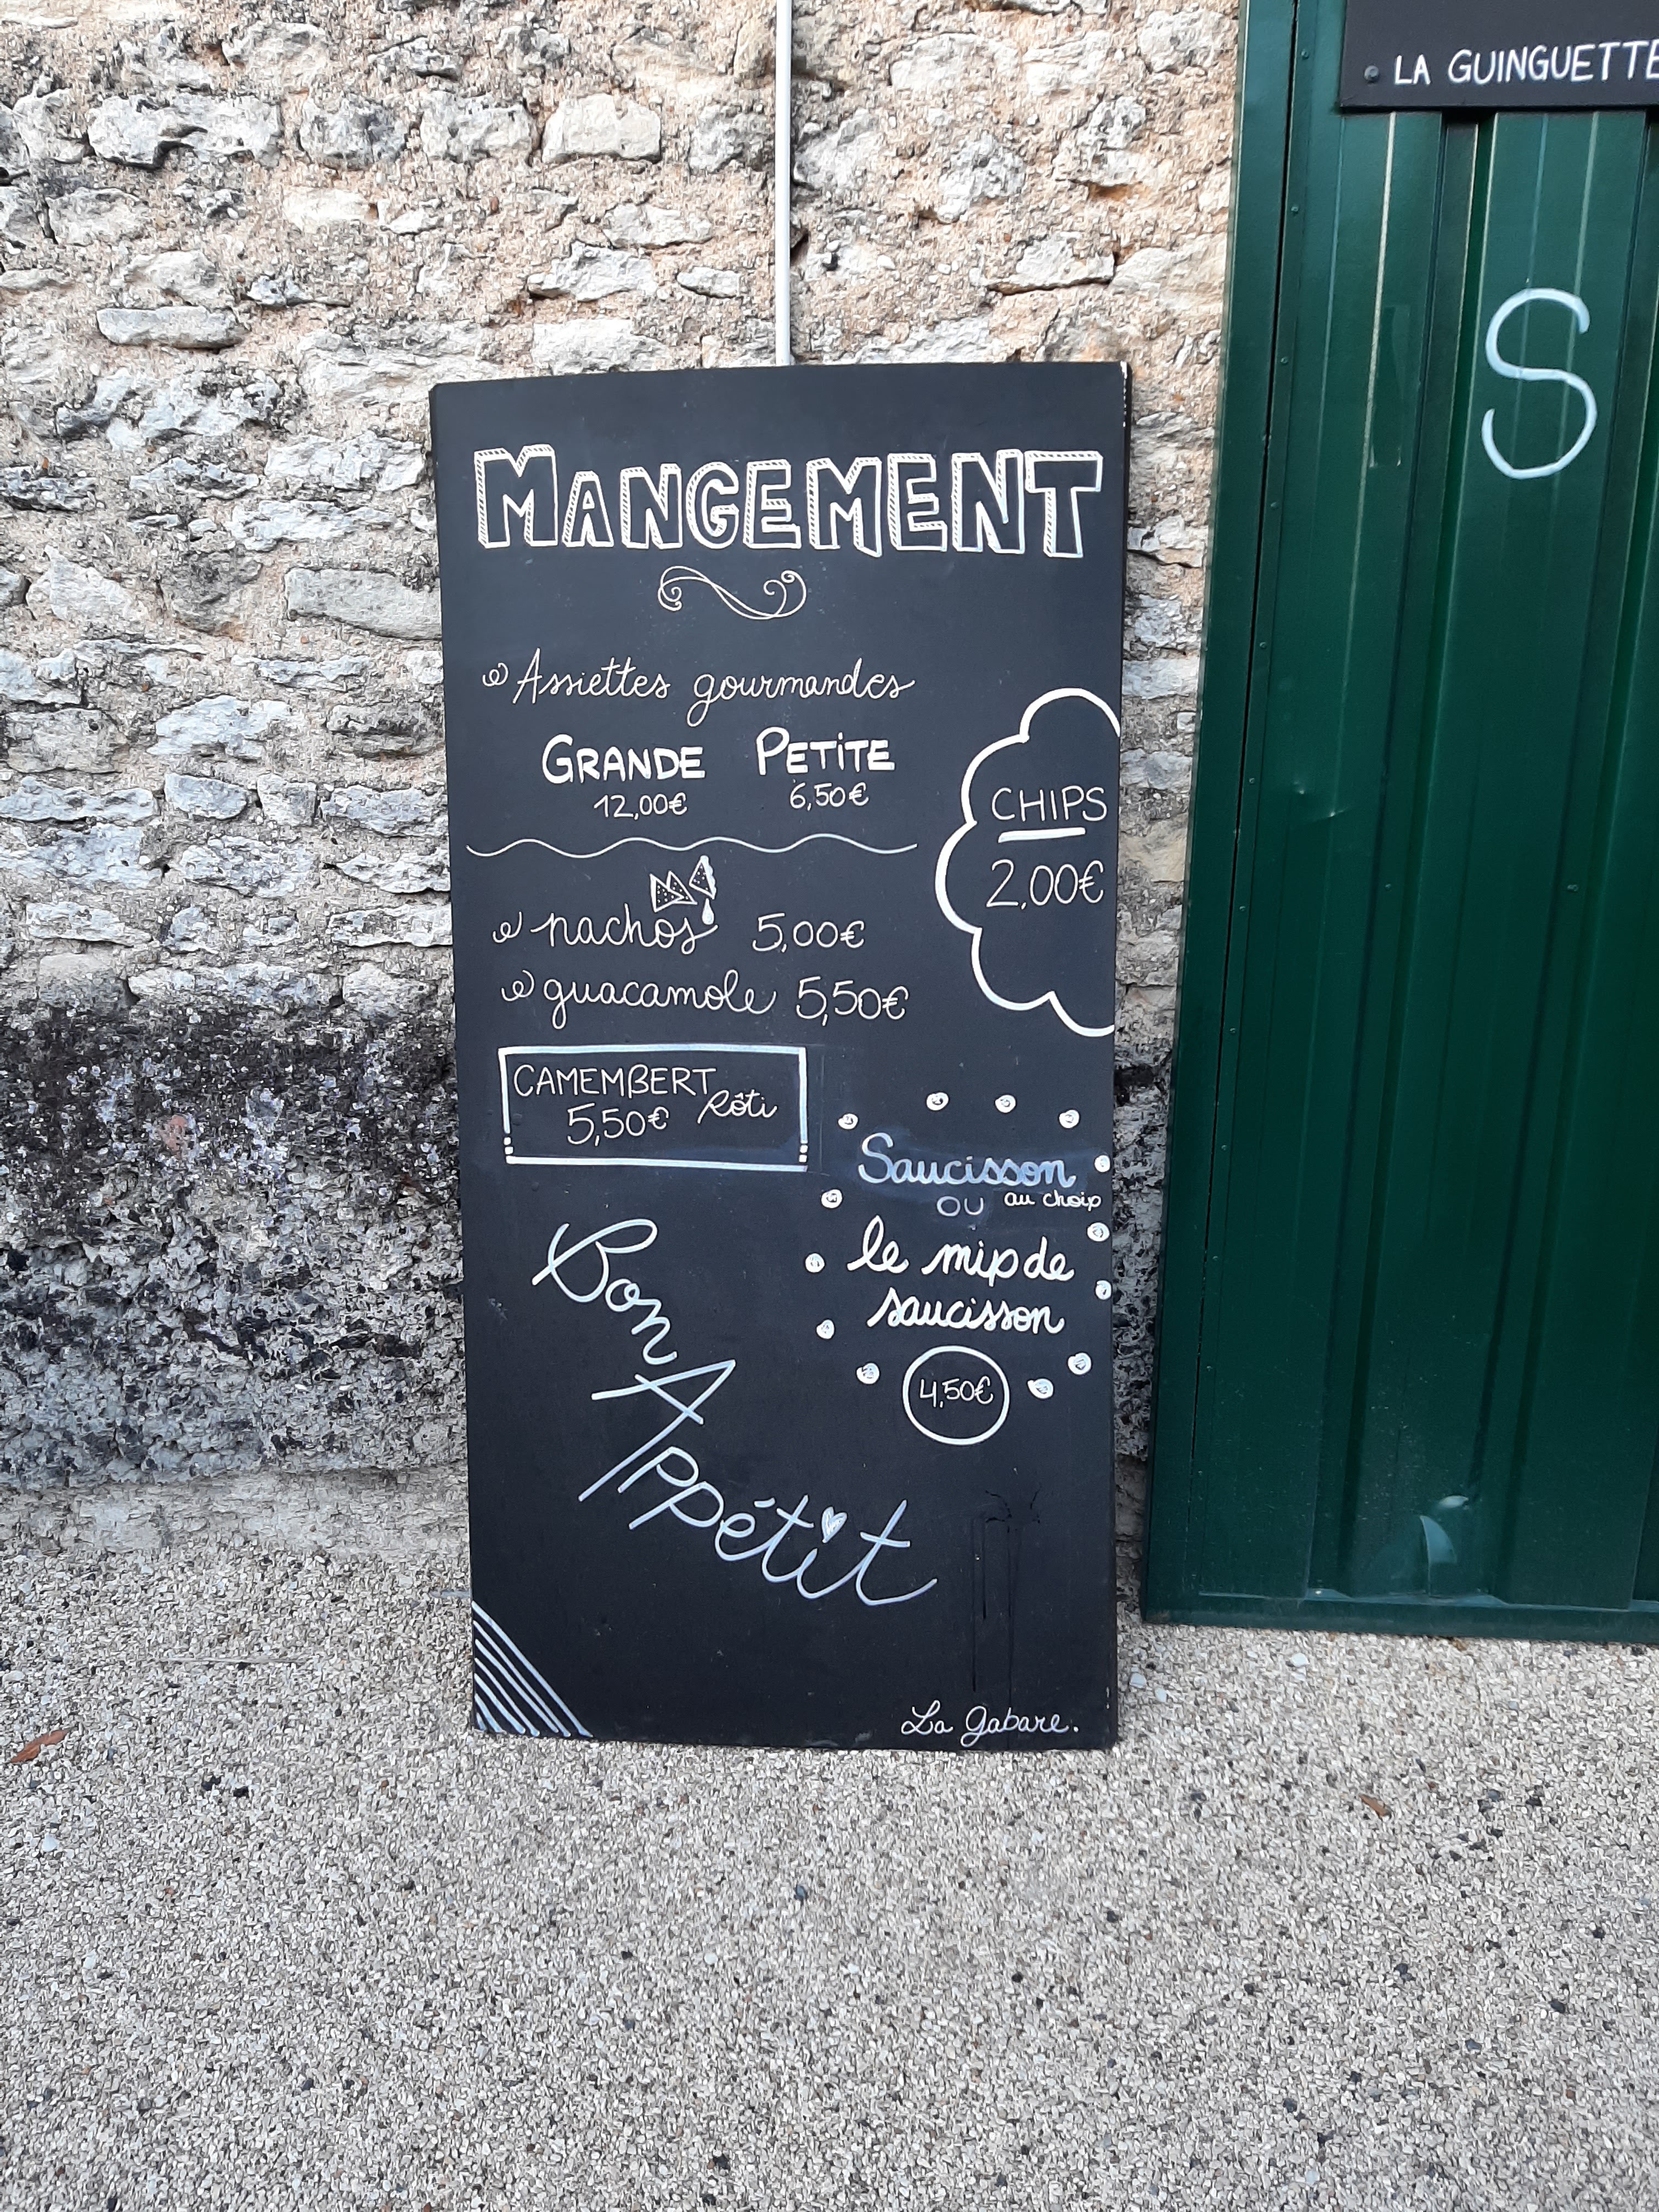 LA GUINGUETTE
S
MANGEMENT
Assiettes gourmandes
GRANDE PETITE
12,00€ 6,50€
CHIPS
2,00€
nachos 5,00€
guacamole 5,50€
CAMEMBERT Rôti
5,50€
Saucisson
ou au choix
le mix de
saucisson
4,50€
Bon
Appétit
La Gabare.